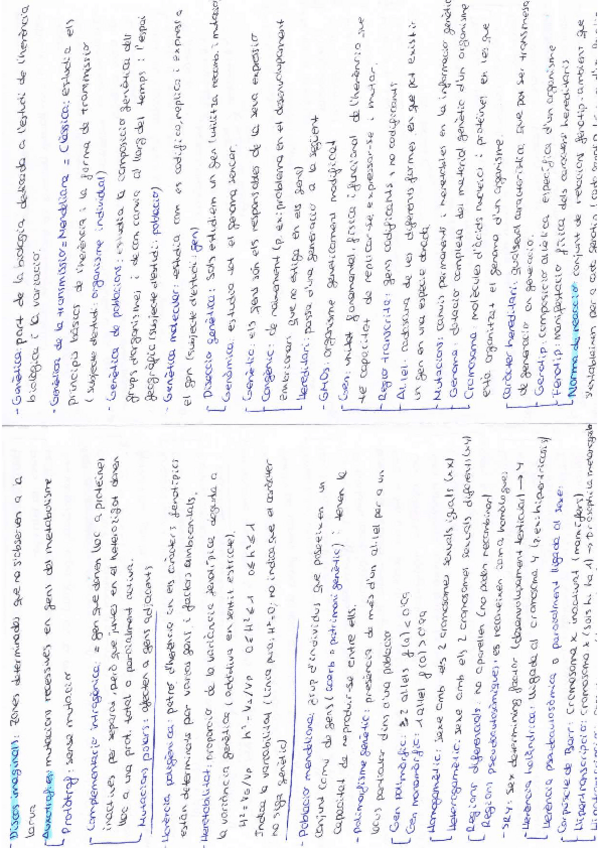 - Genètica: part de la biologia dedicada a l'estudi de l'herència
biològica i la variació.
- Genètica de la transmissió = Mendeliana = Clàssica: estudia els
principis bàsics de l'herència i la forma de transmissió
(subjecte d'estudi: organisme individual)
- Genètica de poblacions: estudia la composició genètica dels
grups d'organismes i de com canvia al llarg del temps i l'espai
geogràfic (subjecte d'estudi: població)
- Genètica molecular: estudia com es codifica, replica i expressa
el gen (subjecte d'estudi: gen)
Dissecció genètica: sols estudiem un gen (utilitza recomb. i mutació
Genòmica: estudia tot el genoma sencer.
Genètic: els gens són els responsables de la seva expressió
Congènic: de naixement (p. ex: problema en el desenvolupament
embrionari que no estiga en els gens)
Hereditari: passa d'una generació a la següent
- GMOs: organisme genèticament modificat
Gen: unitat fonamental, física i funcional de l'herència que
té capacitat de replicar-se, expressar-se i mutar.
- Regió transcrita: gens codificants i no codificants
Al·lel: cadascuna de les diferents formes en que pot existir
un gen en una espècie donada
Mutacions: canvis permanents i heretables en la informació genètica
- Genoma: dotació completa del material genètic d'un organisme
Cromosoma: molècules d'àcids nucleics i proteïnes en les que
està organitzat el genoma d'un organisme.
Caràcter hereditari: qualsevol característica que pot ser transmesa
de generació en generació.
- Genotip: composició al·lèlica específica d'un organisme
- Fenotip: manifestació física dels caràcters hereditaris
Norma de reacció: conjunt de relacions genotip-ambient que
- Discos imaginals: zones determinades que no s'observen a la
larva
Auxotròfics: mutacions recessives en gens del metabolisme
Protòtrof: sense mutació
- Complementació intragènica: = gen que donen lloc a proteïnes
inactives per separat, però que juntes en el heterozigot donen
lloc a una prot. total o parcialment activa.
Mutacions polars: afecten a gens adjacents
- Herència poligènica: patró d'herència en els caràcters fenotípics
estàn determinats per varios gens, i factors ambientals.
- Heretabilitat: proporció de la variància fenotípica deguda a
la variància genètica (additiva en sentit estricte).
H²=VG/VP h²=VA/VP 0≤H²≤1 0≤h²≤1
Indica la variabilitat (línia pura: H²=0; no indica que el caràcter
no siga genètic)
- Població mendeliana: grup d'individus que posseïxen un
conjunt comú de gens (acerb o patrimoni genètic) i tenen la
capacitat de reproduir-se entre ells.
- Polimorfisme genètic: presència de més d'un al·lel per a un
locus particular dins d'una població
Gen polimòrfic: ≥2 al·lels f(a)<0'99
Gen monomòrfic: 1 al·lel f(a)>0'99
Homogamètic: sexe amb els 2 cromosomes sexuals iguals (XX)
Heterogamètic: sexe amb els 2 cromosomes sexuals diferents (XY)
Regions diferencials: no aparellen (no poden recombinar)
Regions pseudoautosòmiques: es reconeixen com a homòlogues
- SRY: Sex determining factor (desenvolupament testicular) → Y
Herència holàndrica: lligada al cromosoma Y (p. ex: hipertricosis)
Herència pseudoautosòmica o parcialment lligada al sexe:
Corpúscle de Barr: Cromosoma X inactivat (mamífers)